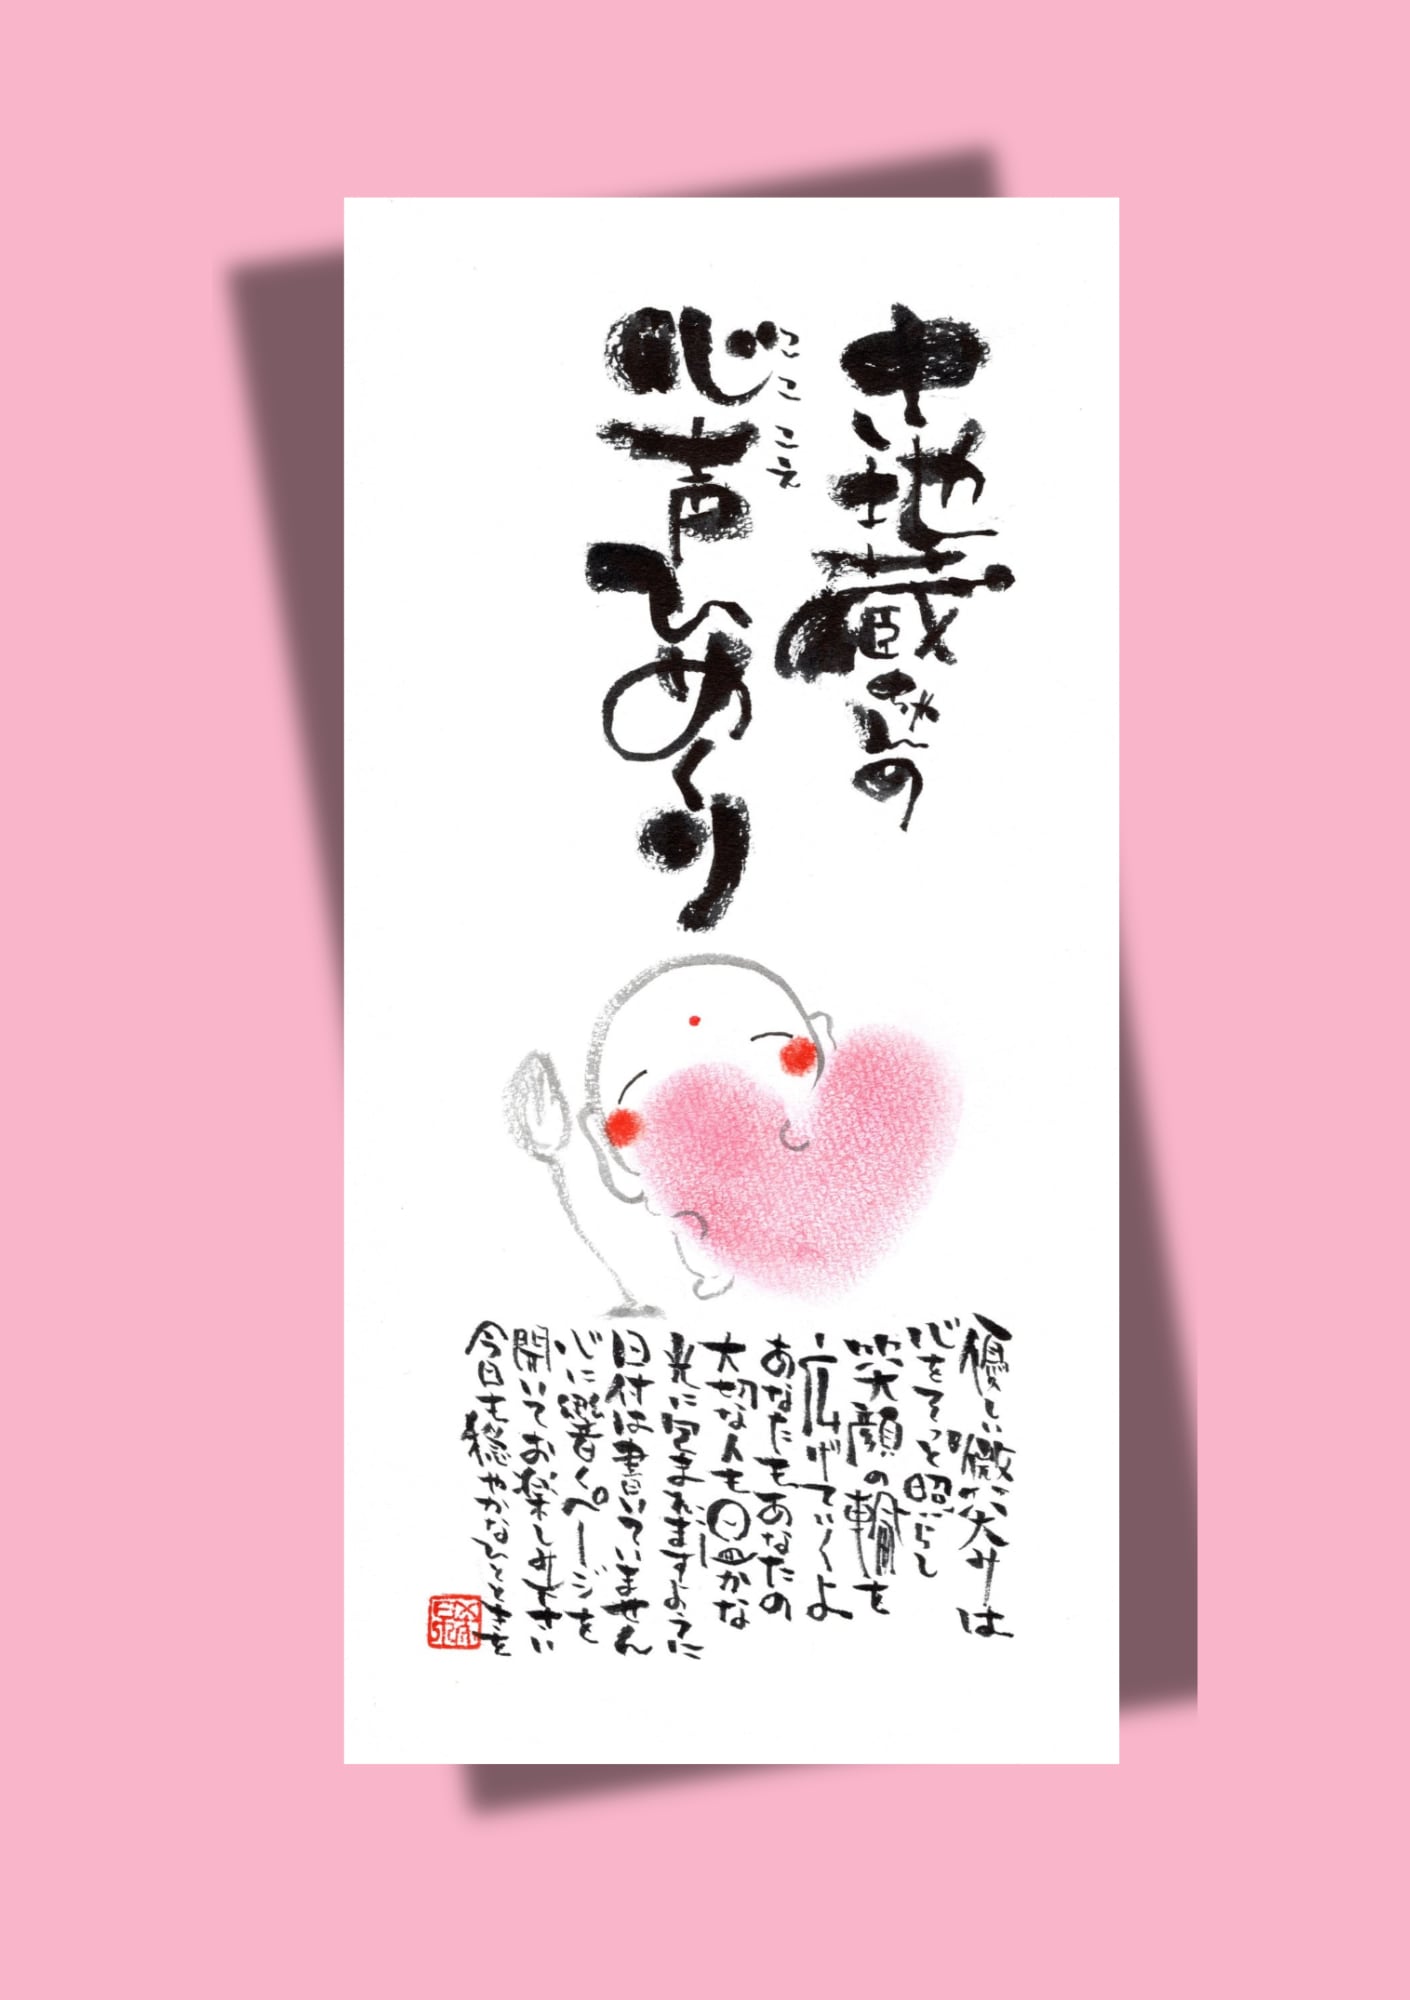 お地蔵ちゃんの
心声ひめくり
ここ こえ
優しい微笑みは
心をそっと照らし
笑顔の輪を
広げていくよ
あなたもあなたの
大切な人も温かな
光に包まれますように
日付は書いていません
心に響くページを
開いてお楽しみ下さい
今日も穏やかなひとときを